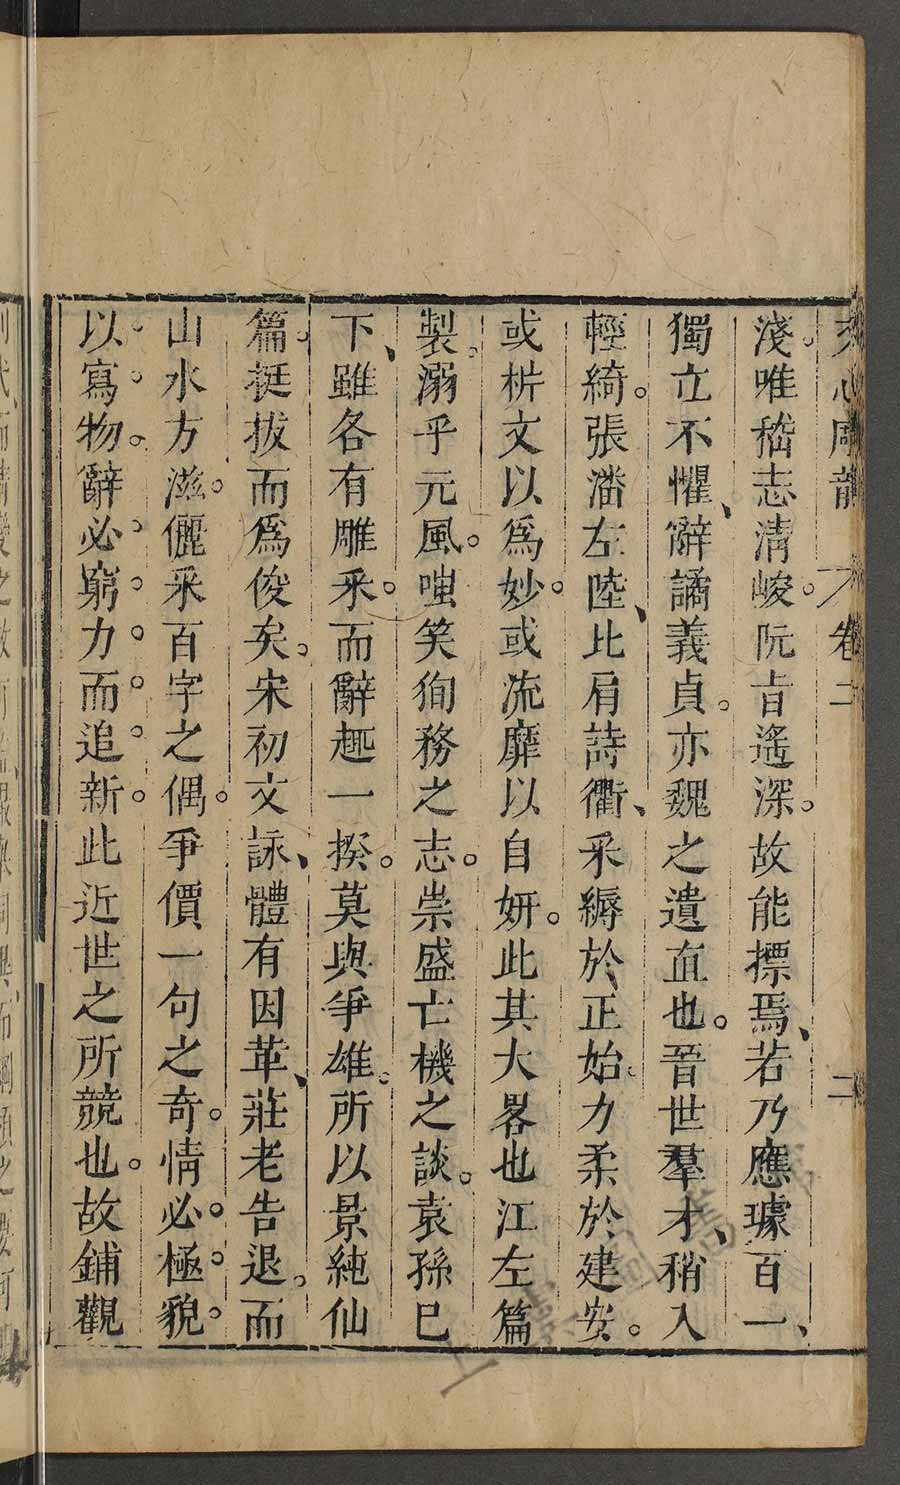 文心雕龍 卷二 二
淺。唯嵇志清峻。阮旨遙深。故能摽焉、若乃應璩百一、
獨立不懼、辭譎義貞。亦魏之遺直也。晉世羣才、稍入
輕綺。張潘左陸、比肩詩衢、采縟於正始。力柔於建安。
或枡文以爲妙。或流靡以自妍。此其大畧也江左篇
製。溺乎元風。嗤笑徇務之志。崇盛亡機之談。袁孫已
下、雖各有雕采。而辭趣一揆。莫與爭雄。所以景純仙
篇。挺拔而爲俊矣。宋初文詠、體有因革、莊老告退。而
山水方滋。儷采百字之偶。爭價一句之奇。情必。極。貌。
以。寫。物。辭必。窮。力。而。追。新。此近世之所競也。故鋪觀